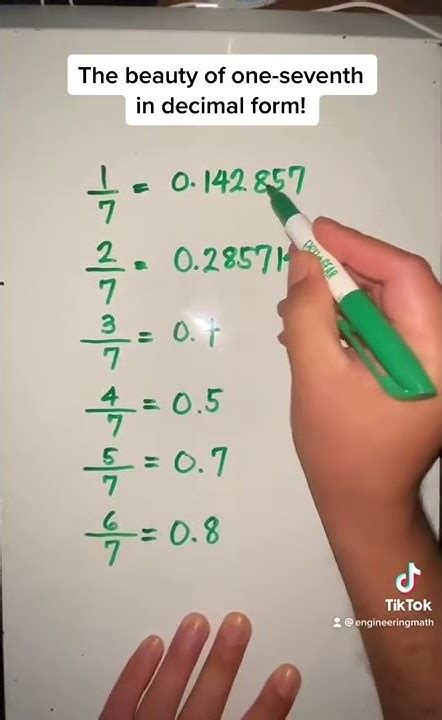 The beauty of one-seventh
in decimal form!
1/7 = 0.142857
2/7 = 0.28571
3/7 = 0.
4/7 = 0.5
5/7 = 0.7
6/7 = 0.8
TikTok
@engineeringmath